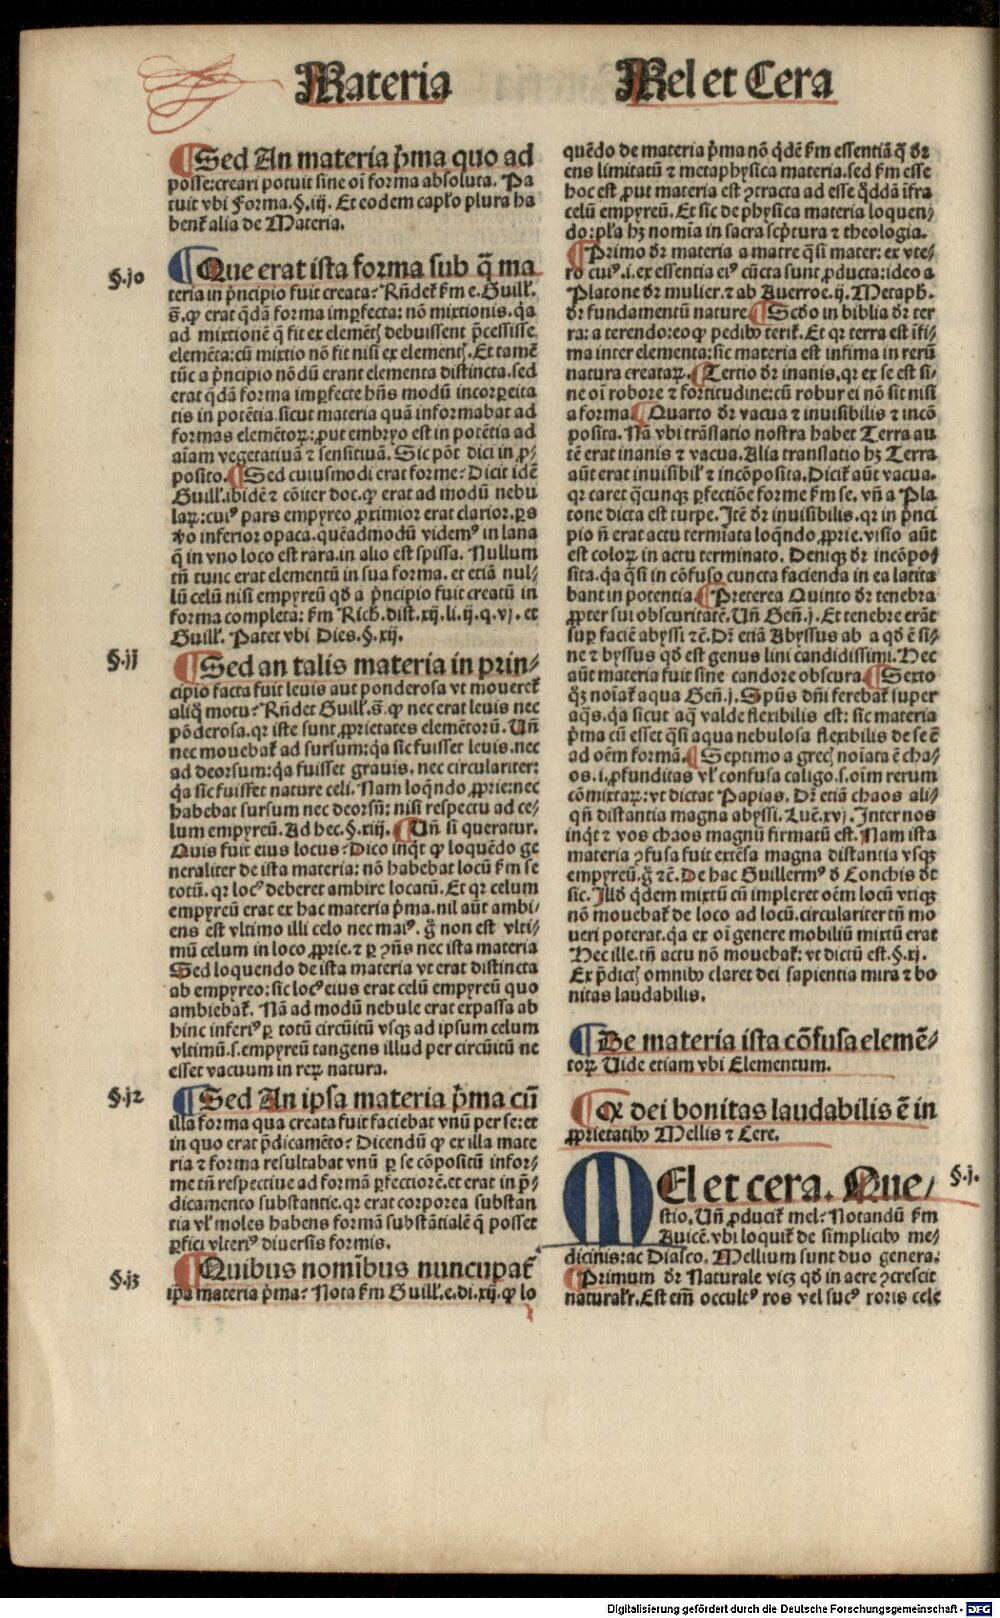 Materia
Mel et Cera
¶Sed An materia p̄ma quo ad
posse:creari potuit sine oī forma absoluta. Pa
tuit vbi Forma.§.iij. Et eodem cap̄lo plura ha
bent̄ alia de Materia.
§.jo
¶Que erat ista forma sub q̄ ma
teria in p̄ncipio fuit creata? Rn̄det̄ s̄m e. Guilł.
s̄. ꝙ erat q̄dā forma imꝑfecta: nō mixtionis. q̄a
ad mixtionē q̄ fit ex elemētꝭ debuissent p̄cessisse
elemēta:cū mixtio nō fit nisi ex elementꝭ. Et tamē
tūc a p̄ncipio nōdū erant elementa distincta. sed
erat q̄dā forma imꝑfecte hn̄s modū incorꝑeita
tis in potētia. sicut materia quā informabat ad
formas elemētoꝝ: ꝓut embryo est in potētia ad
aīam vegetatiuā ⁊ sensitiuā. Sic pōt dici in ꝓ⸗
posito. ¶Sed cuiusmodi erat forme? Dicit idē
Guilł. ibidē ⁊ cōiter doc. ꝙ erat ad modū nebu
laꝝ: cuiꝰ pars empyreo ꝓximior erat clarior. ꝑs
v̄o inferior opaca. quēadmodū videmꝰ in lana
q̄ in vno loco est rara. in alio est spissa. Nullum
tn̄ tunc erat elementū in sua forma. et etiā nul⸗
lū celū nisi empyreū qd̄ a p̄ncipio fuit creatū in
forma completa: s̄m Rich. dist. xij. li. ij. q. vj. et
Guilł. Patet vbi Dies. §. xij.
§.jj
¶Sed an talis materia in prin⸗
cipio facta fuit leuis aut ponderosa vt moueret̄
aliq̄ motu? Rn̄det Guilł. s̄. ꝙ nec erat leuis nec
pōderosa. qr iste sunt ꝓprietates elemētorū. Un̄
nec mouebat̄ ad sursum: q̄a sic fuisset leuis. nec
ad deorsum: q̄a fuisset grauis. nec circulariter:
q̄a sic fuisset nature celi. Nam loqn̄do ꝓprie: nec
habebat sursum nec deorsū: nisi respectu ad ce⸗
lum empyreū. Ad hec. §. xiij. ¶Un̄ si queratur.
Quis fuit eius locus? Dico inq̄t ꝙ loquēdo ge
neraliter de ista materia: nō habebat locū s̄m se
totū. qr locꝰ deberet ambire locatū. Et qr celum
empyreū erat ex hac materia p̄ma. nil aūt ambi⸗
ens est vltimo illi celo nec maiꝰ. g̊ non est vlti⸗
mū celum in loco ꝓprie. ⁊ ꝑ ↄn̄s nec ista materia
Sed loquendo de ista materia vt erat distincta
ab empyreo: sic locꝰ eius erat celū empyreū quo
ambiebat̄. Nā ad modū nebule erat expassa ab
hinc inferiꝰ ꝑ totū circūitū vsqꝫ ad ipsum celum
vltimū. s. empyreū tangens illud per circūitū ne
esset vacuum in reꝝ natura.
§.j2
¶Sed An ipsa materia p̄ma cū
illa forma qua creata fuit faciebat vnū per se: et
in quo erat p̄dicamēto? Dicendū ꝙ ex illa mate
ria ⁊ forma resultabat vnū ꝑ se cōpositū infor⸗
me tn̄ respectiue ad formā ꝑfectiorē. et erat in p̄⸗
dicamento substantie. qr erat corporea substan
tia vł moles habens formā substātialē q̄ posset
ꝑfici vlteriꝰ diuersis formis.
§.j3
¶Quibus nomībus nuncupat̄
ip̄a materia p̄ma? Nota s̄m Guilł. e. di. xij. ꝙ lo
quēdo de materia p̄ma nō q̄dē s̄m essentiā q̄ dr̄
ens limitatū ⁊ metaphysica materia. sed s̄m esse
hoc est ꝓut materia est ↄtracta ad esse q̄ddā īfra
celū empyreū. Et sic de physica materia loquen⸗
do: pl̄a hꝫ nomīa in sacra scp̄tura ⁊ theologia.
¶Primo dr̄ materia a matre q̄si mater: ex vte⸗
ro cuiꝰ. i. ex essentia eiꝰ cūcta sunt ꝓducta: ideo a
Platone dr̄ mulier. ⁊ ab Auerroe. ij. Metaph.
dr̄ fundamentū nature. ¶Scd̄o in biblia dr̄ ter
ra: a terendo: eo ꝙ pedibꝰ terit̄. Et qr terra est īfi⸗
ma inter elementa: sic materia est infima in rerū
natura creataꝝ. ¶Tertio dr̄ inanis. qr ex se est si⸗
ne oī robore ⁊ fortitudine: cū robur ei nō sit nisi
a forma. ¶Quarto dr̄ vacua ⁊ inuisibilis ⁊ incō
posita. Nā vbi trāslatio nostra habet Terra au
tē erat inanis ⁊ vacua. Alia translatio hꝫ Terra
aūt erat inuisibiľ ⁊ incōposita. Dicit̄ aūt vacua.
qr caret q̄cunqꝫ ꝑfectiōe forme s̄m se. vn̄ a Pla
tone dicta est turpe. Itē dr̄ inuisibilis. qr in p̄nci
pio n̄ erat actu termīata loqn̄do ꝓprie. visio aūt
est coloꝝ in actu terminato. Deniqꝫ dr̄ incōpo⸗
sita. q̄a q̄si in cōfuso cuncta facienda in ea latita
bant in potentia. ¶Preterea Quinto dr̄ tenebra
ꝓpter sui obscuritatē. Un̄ Geñ. j. Et tenebre erāt
suꝑ faciē abyssi ⁊c̄. Dr̄ etiā Abyssus ab a qd̄ ē si⸗
ne ⁊ byssus qd̄ est genus lini candidissimi. Hec
aūt materia fuit sine candore obscura. ¶Sexto
q̄ꝫ noīat̄ aqua Geñ. j. Spūs dn̄i ferebat̄ super
aq̄s. q̄a sicut aq̄ valde flexibilis est: sic materia
p̄ma cū esset q̄si aqua nebulosa flexibilis de se ē
ad oēm formā. ¶Septimo a grecꝭ noīata ē cha⸗
os. i. ꝓfunditas vł confusa caligo. s. oīm rerum
cōmixtaꝝ: vt dictat Papias. Dr̄ etiā chaos ali⸗
qn̄ distantia magna abyssi. Luc̄. xvj. Inter nos
inq̄t ⁊ vos chaos magnū firmatū est. Nam ista
materia ↄfusa fuit extēsa magna distantia vsqꝫ
empyreū. g̊ ⁊c̄. De hac Guillermꝰ d̄ Conchis dt̄
sic. Illd̄ q̄dem mixtū cū impleret oēm locū vtiqꝫ
nō mouebat̄ de loco ad locū. circulariter tn̄ mo
ueri poterat. q̄a ex oī genere mobiliū mixtū erat
Hec ille. tn̄ actu nō mouebat̄: vt dictū est. §. xj.
Ex p̄dictꝭ omnibꝰ claret dei sapientia mira ⁊ bo
nitas laudabilis.
¶De materia ista cōfusa elemē⸗
toꝝ Uide etiam vbi Elementum.
¶Qꝫ dei bonitas laudabilis ē in
ꝓprietatibꝰ Mellis ⁊ Cere.
§.j.
MEl et cera. Que⸗
stio. Un̄ ꝓducit̄ mel? Notandū s̄m
Auicē. vbi loquit̄ de simplicibꝰ me⸗
dicinis: ac Diasco. Mellium sunt duo genera:
¶Primum dr̄ Naturale vicꝫ qd̄ in aere ↄcrescit
naturalr̄. Est em̄ occultꝰ ros vel sucꝰ roris cele
Digitalisierung gefördert durch die Deutsche Forschungsgemeinschaft - DFG